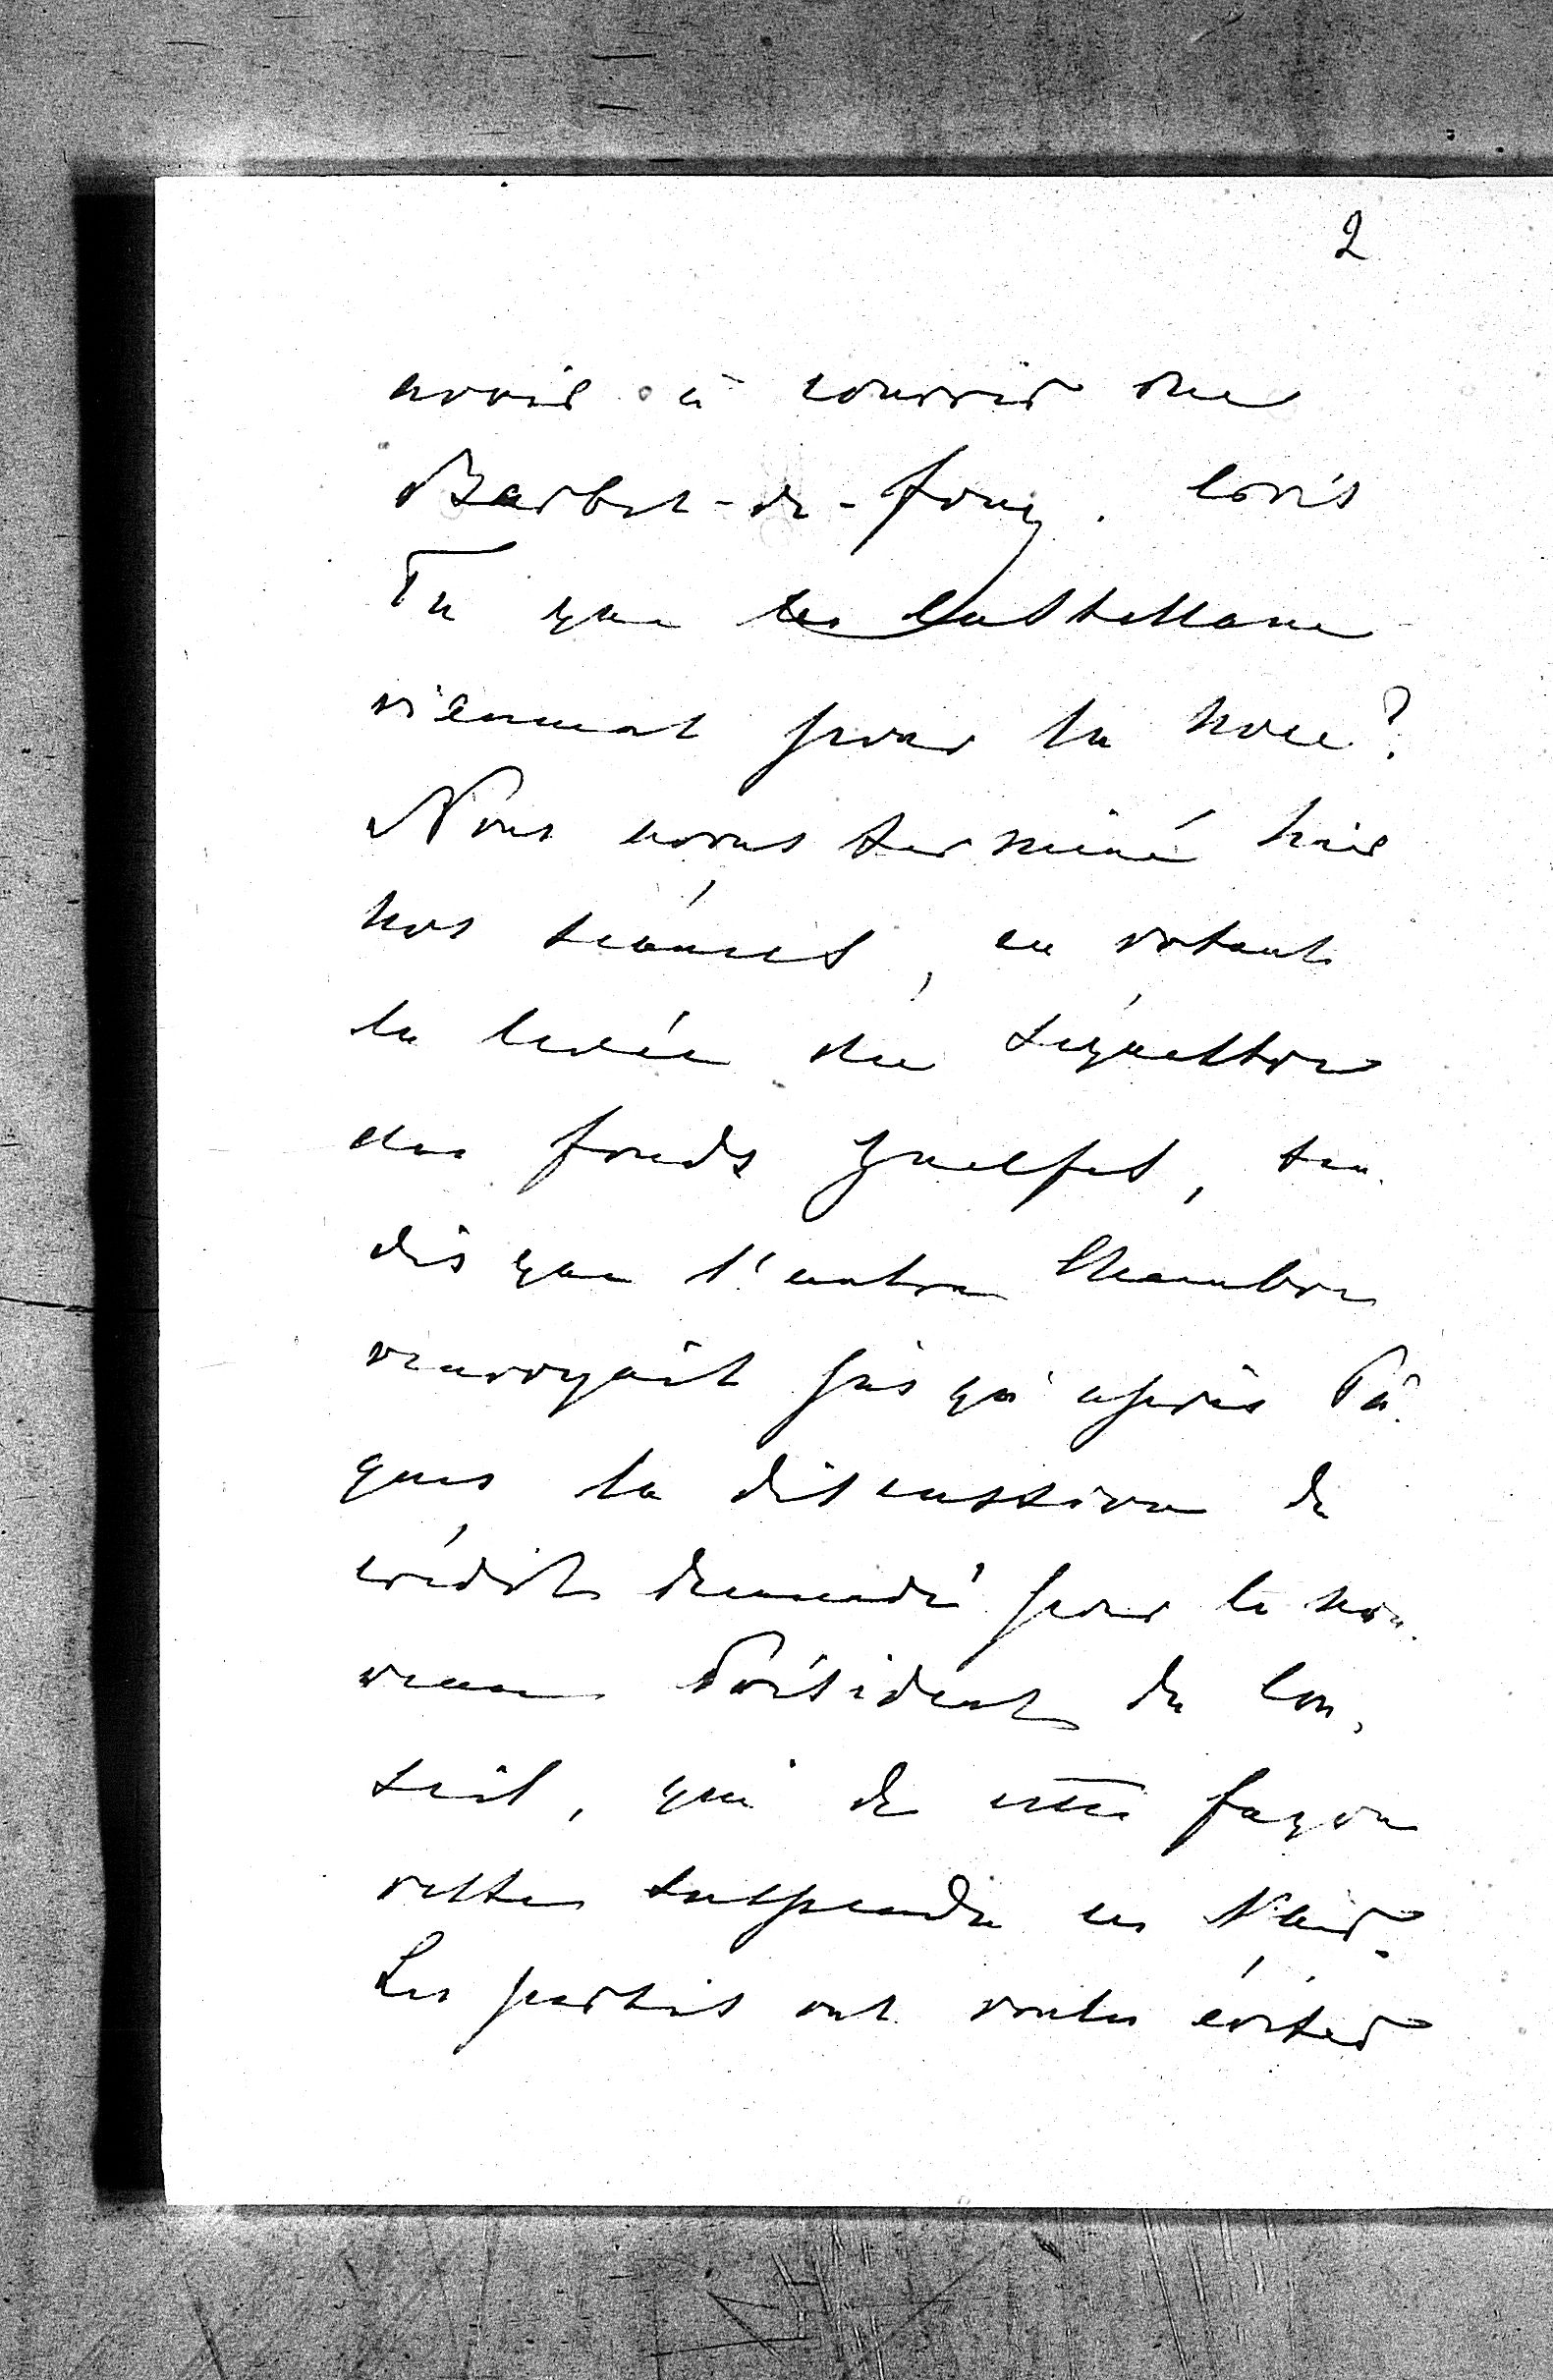 2
avoir à courrir rue
Barbet-de-Jouy. Crois
Tu que les Castellane
viennent pour la noce?
Nous avons terminé hier
nos séances, en votant
la levée du séquestre
des fonds guelfes, tan-
dis que l'autre Chambre
renvoyait jusqu'après Pâ-
ques la discussion du
crédit demandé pour le nou-
veau Président du Con-
seil, qui de cette façon
reste suspendu en l'air.
Les partis ont voulu éviter